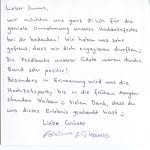 Lieber Junus,
wir möchten uns ganz für die
geniale Umrahmung unseres Hochzeitsfestes
bei dir bedanken! Wir haben uns sehr
gefreut, dass wir dich engagieren durften.
Die Feedbacks unserer Gäste waren durchs
Band sehr positiv!
Besonders in Erinnerung wird uns die
Hochzeitsparty bis in die frühen Morgen-
stunden bleiben. Vielen Dank, dass du
uns dieses Erlebnis geschenkt hast
Liebe Grüsse